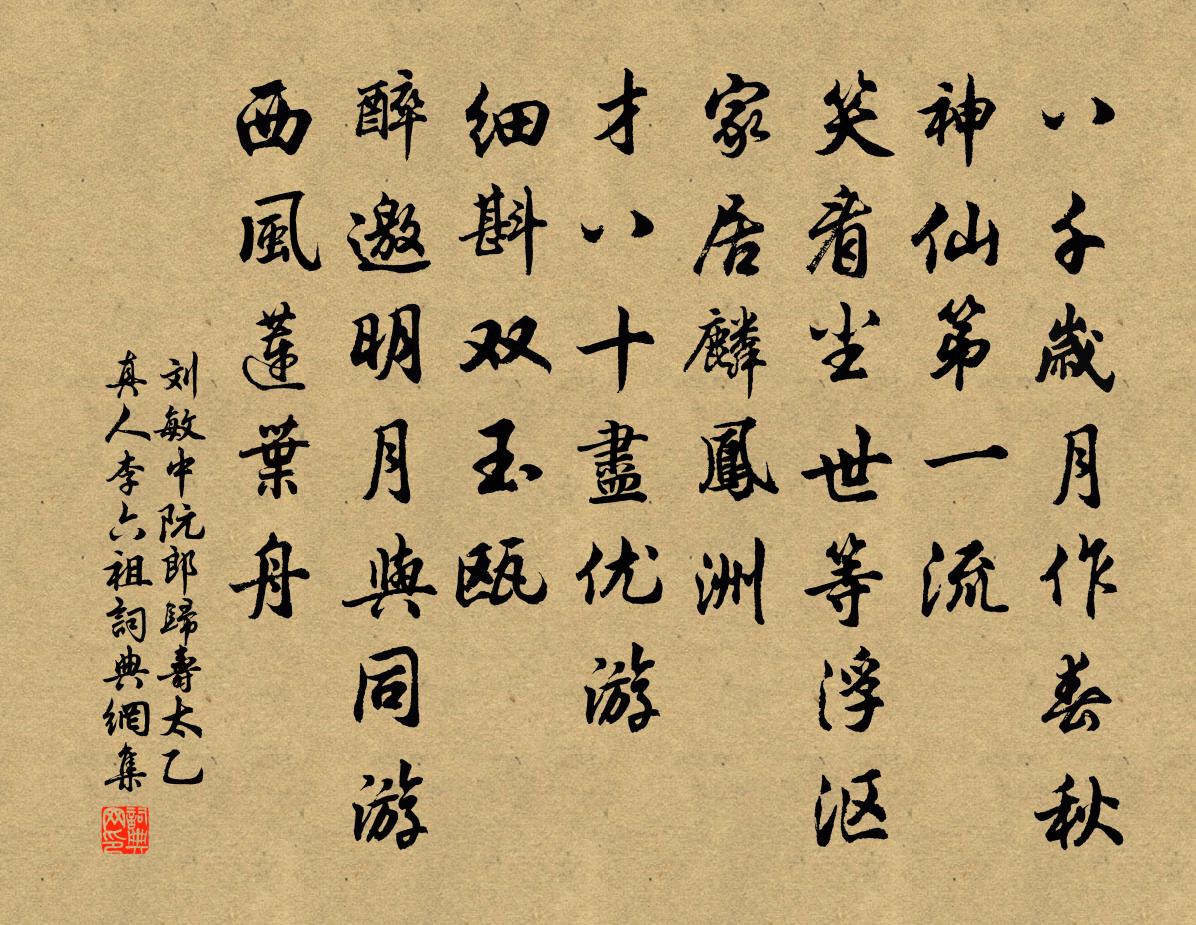 八千歳月作春秋
神仙第一流
笑看尘世等浮沤
家居麟鳳洲
才八十盡优游
细斟双玉瓯
醉邀明月與同游
西風蓮葉舟
刘敏中阮郎歸壽太乙
真人李六祖詞典網集
詞典网印